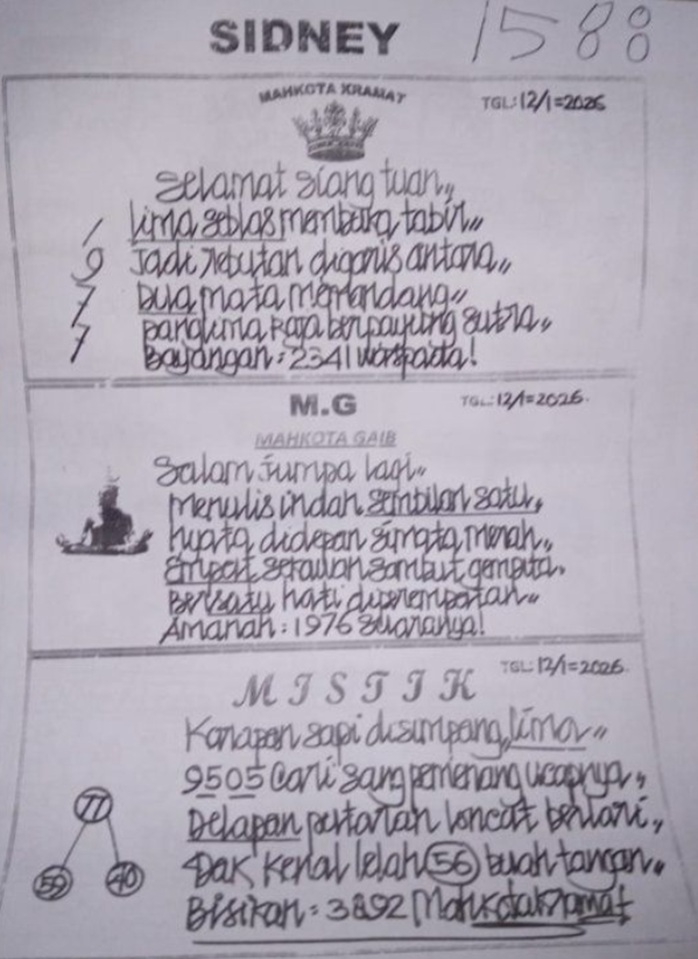 SIDNEY
1588
MAHKOTA KRAMAT
TGL: 12/1=2026
Selamat siang tuan,,
1 lima seblas membuka tabir,,
9 Jadi rebutan digaris antara,,
7 Dua mata memandang,,
7 Panglima Raja berpayung sutra,,
Bayangan: 2341 waspada!
M.G
TGL: 12/1=2026.
MAHKOTA GAIB
Salam Jumpa lagi,,
menulis indah sembilan satu,
nyata didepan simata merah,,
Empat serauan sambut gempita.
Bersatu hati diperempatan,,
Amanah: 1976 suaranya!
TGL: 12/1=2026.
MISTIK
Karapan sapi disimpang, lima,,
9505 Cari sang pemenang ucapnya,,
77
Delapan putaran loncat berlari,,
59 40
Dak kenal lelah 56 buah tangan,,
Bisikan: 3892 Mahkotakramat